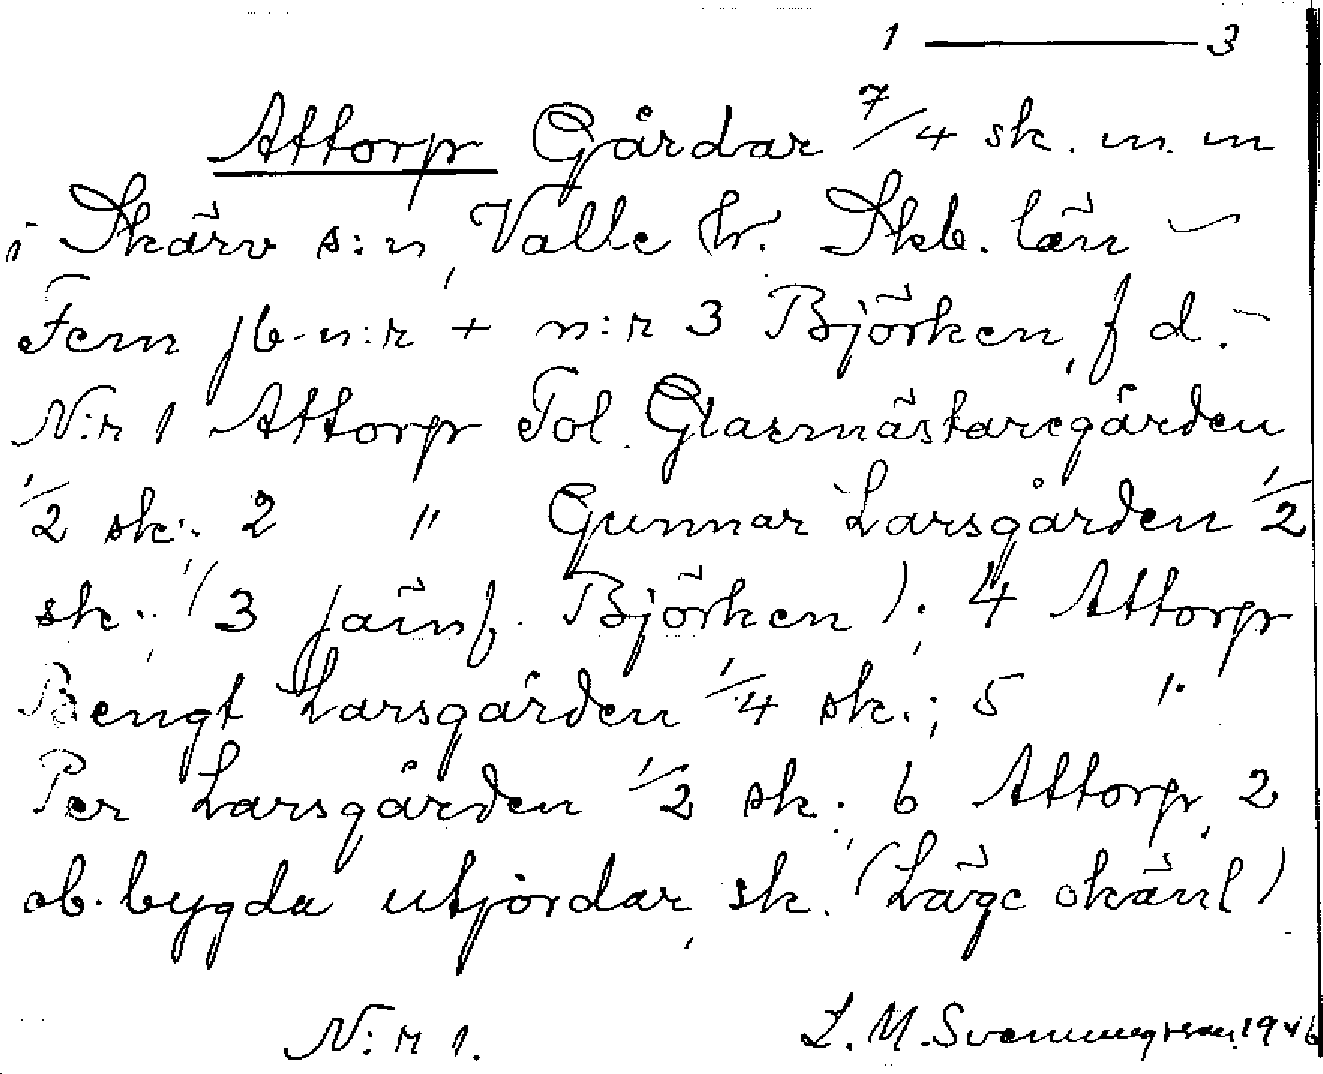 1 — 3
Attorp Gårdar 7/4 sk. m. m
i Skärv s:n, Valle hr. Skb. län –
Fem jb-n:r + n:r 3 Björken, f d. –
N:r 1 Attorp Tol. Glasmästaregården
1/2 sk.; 2 " Gunnar Larsgården 1/2
sk.; (3 jämf. Björken); 4 Attorp
Bengt Larsgården 1/4 sk.; 5 "
Per Larsgården 1/2 sk.; 6 Attorp, 2
ob. bygda utjordar, sk. (Läge okänt)
N:r 1. L. M. Svenungsson 1946